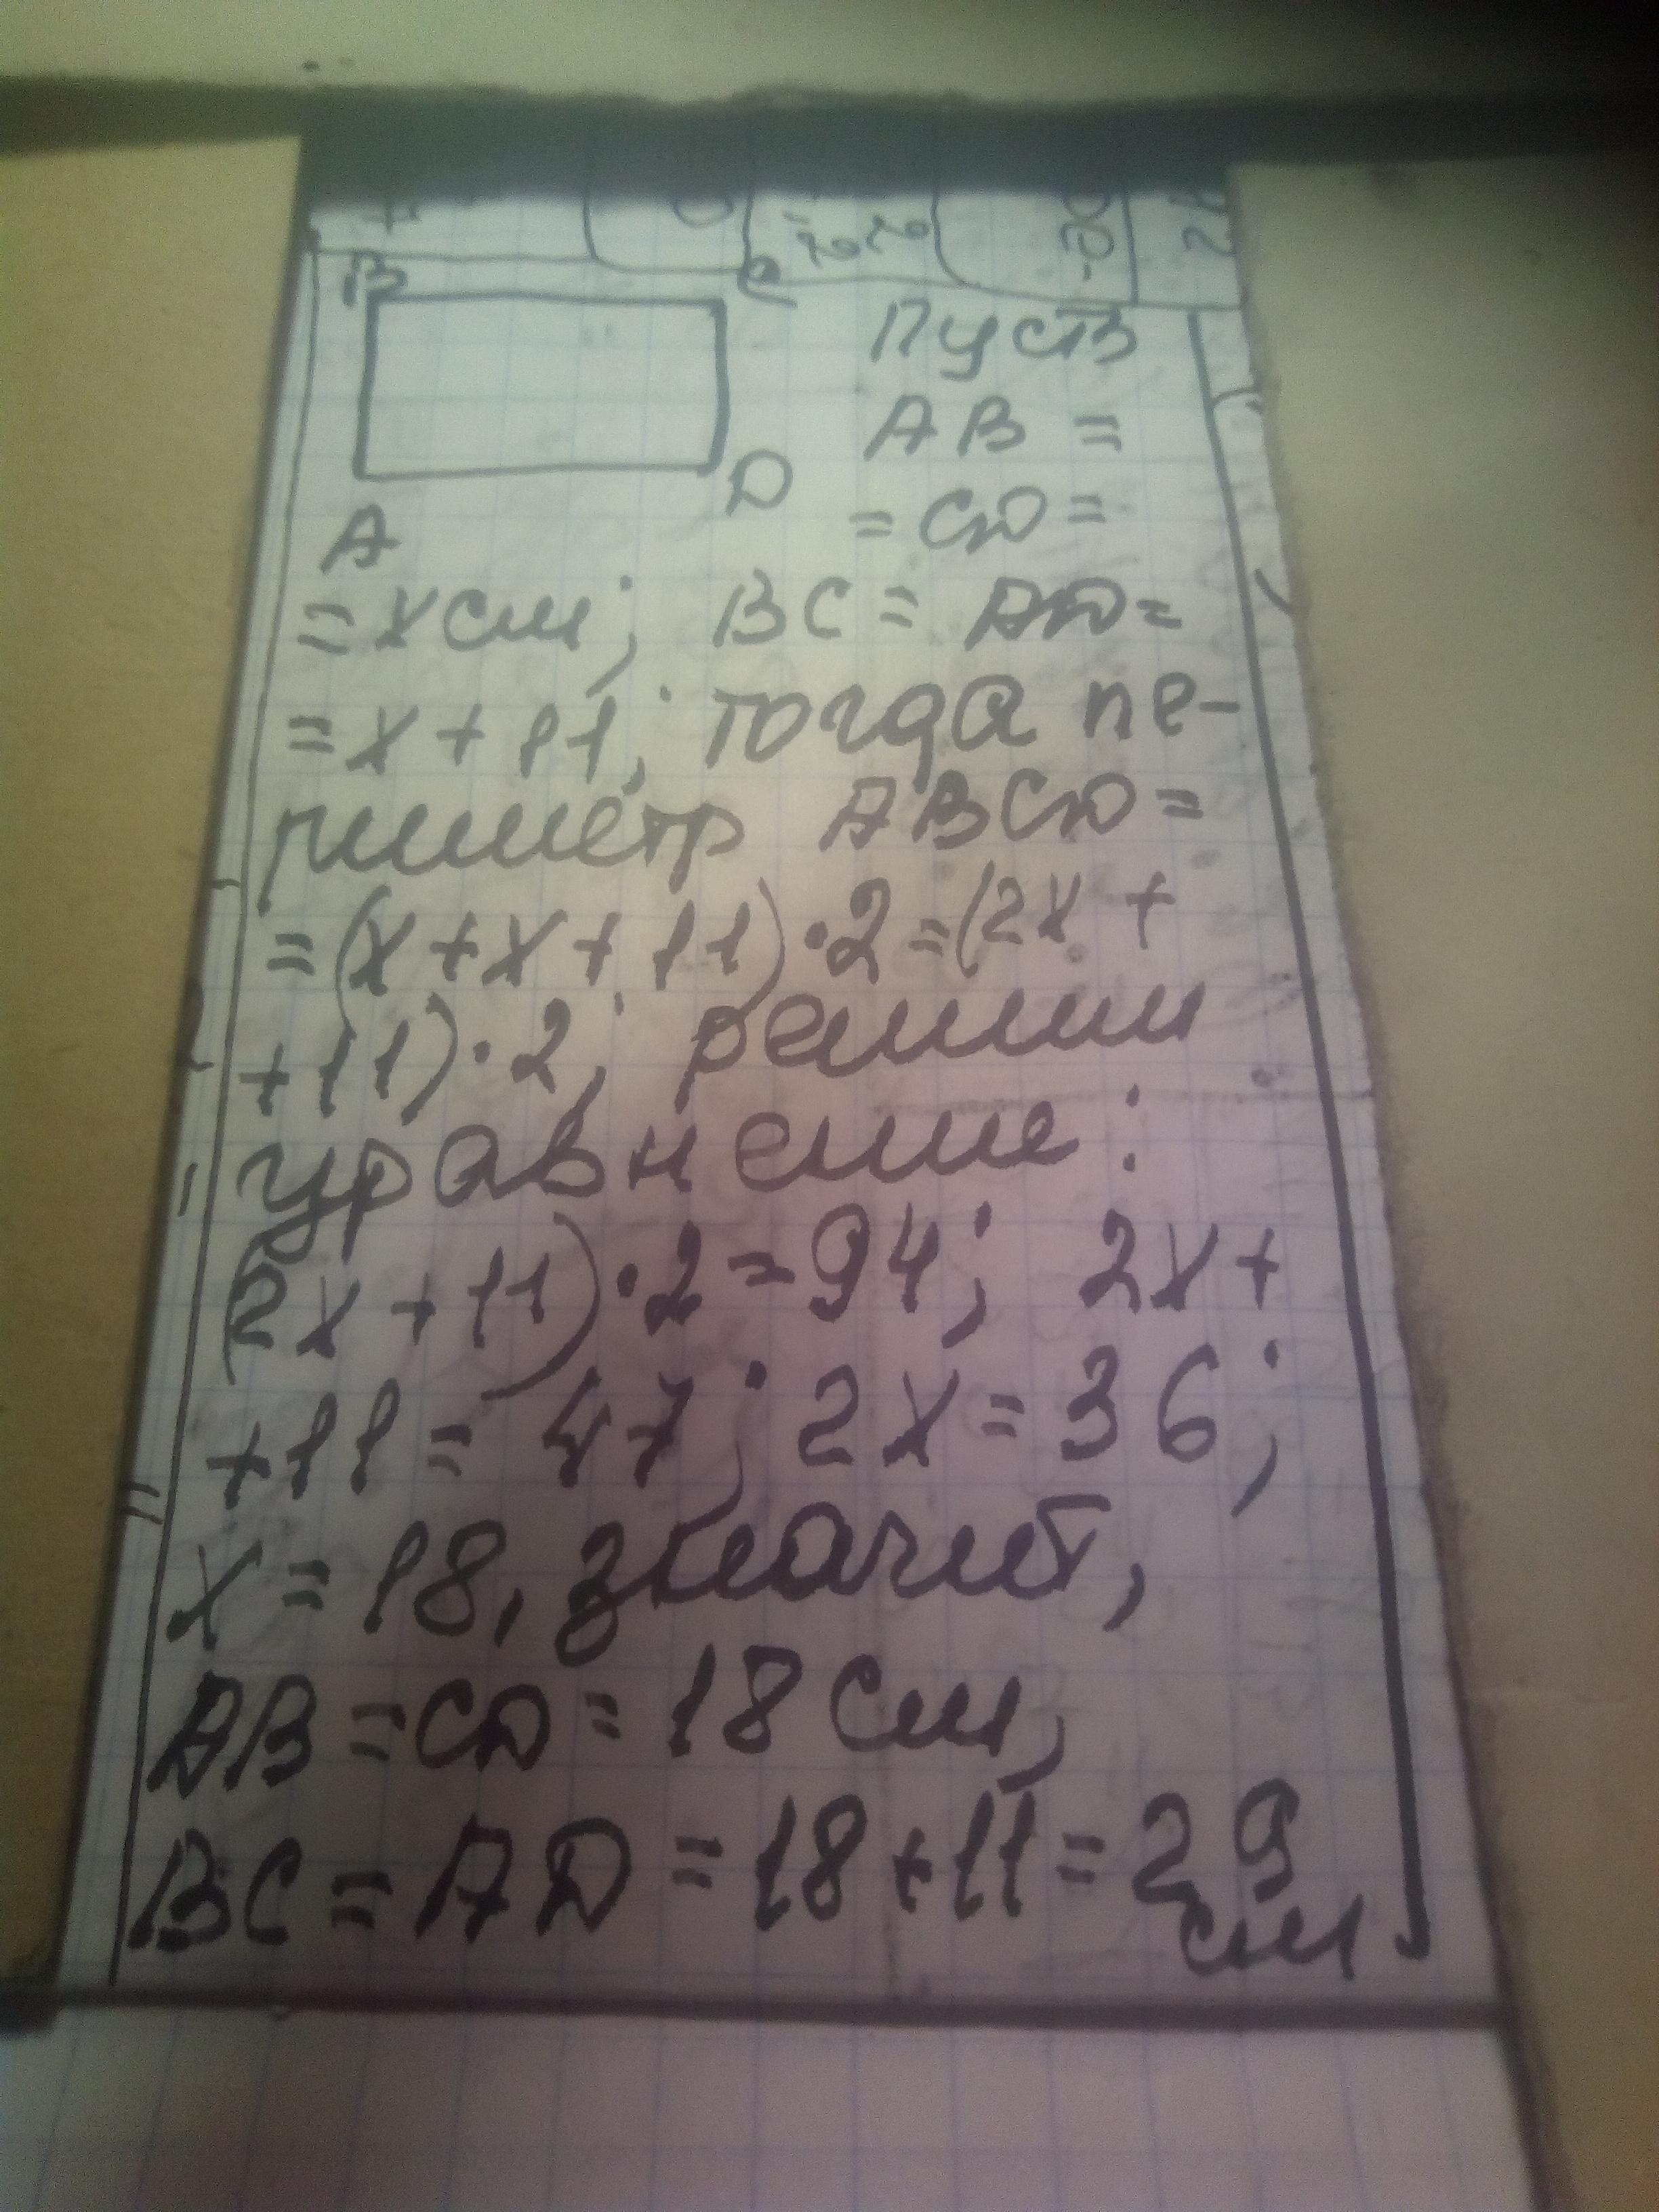 B C
Пусть
AB =
D
= CD =
A
= x см; BC = AD =
= x + 11; тогда пе-
риметр ABCD =
= (x + x + 11) · 2 = (2x +
+ 11) · 2; решим
уравнение:
(2x + 11) · 2 = 94; 2x +
+ 11 = 47; 2x = 36;
x = 18, значит,
AB = CD = 18 см,
BC = AD = 18 + 11 = 29
см